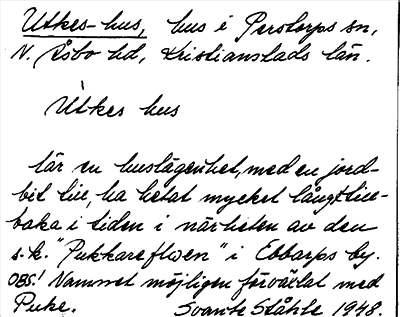 Utkes-hus, hus i Perstorps sn,
N. Åsbo hd, Kristianstads län.
Utkes hus
lär en huslägenhet, med en jord-
bit till, ha hetat mycket långt till-
baka i tiden i närheten av den
s.k. "Pukkareflyen" i Ebbarps by.
OBS! Namnet möjligen förväxlat med
Puke. Svante Ståhle 1948.